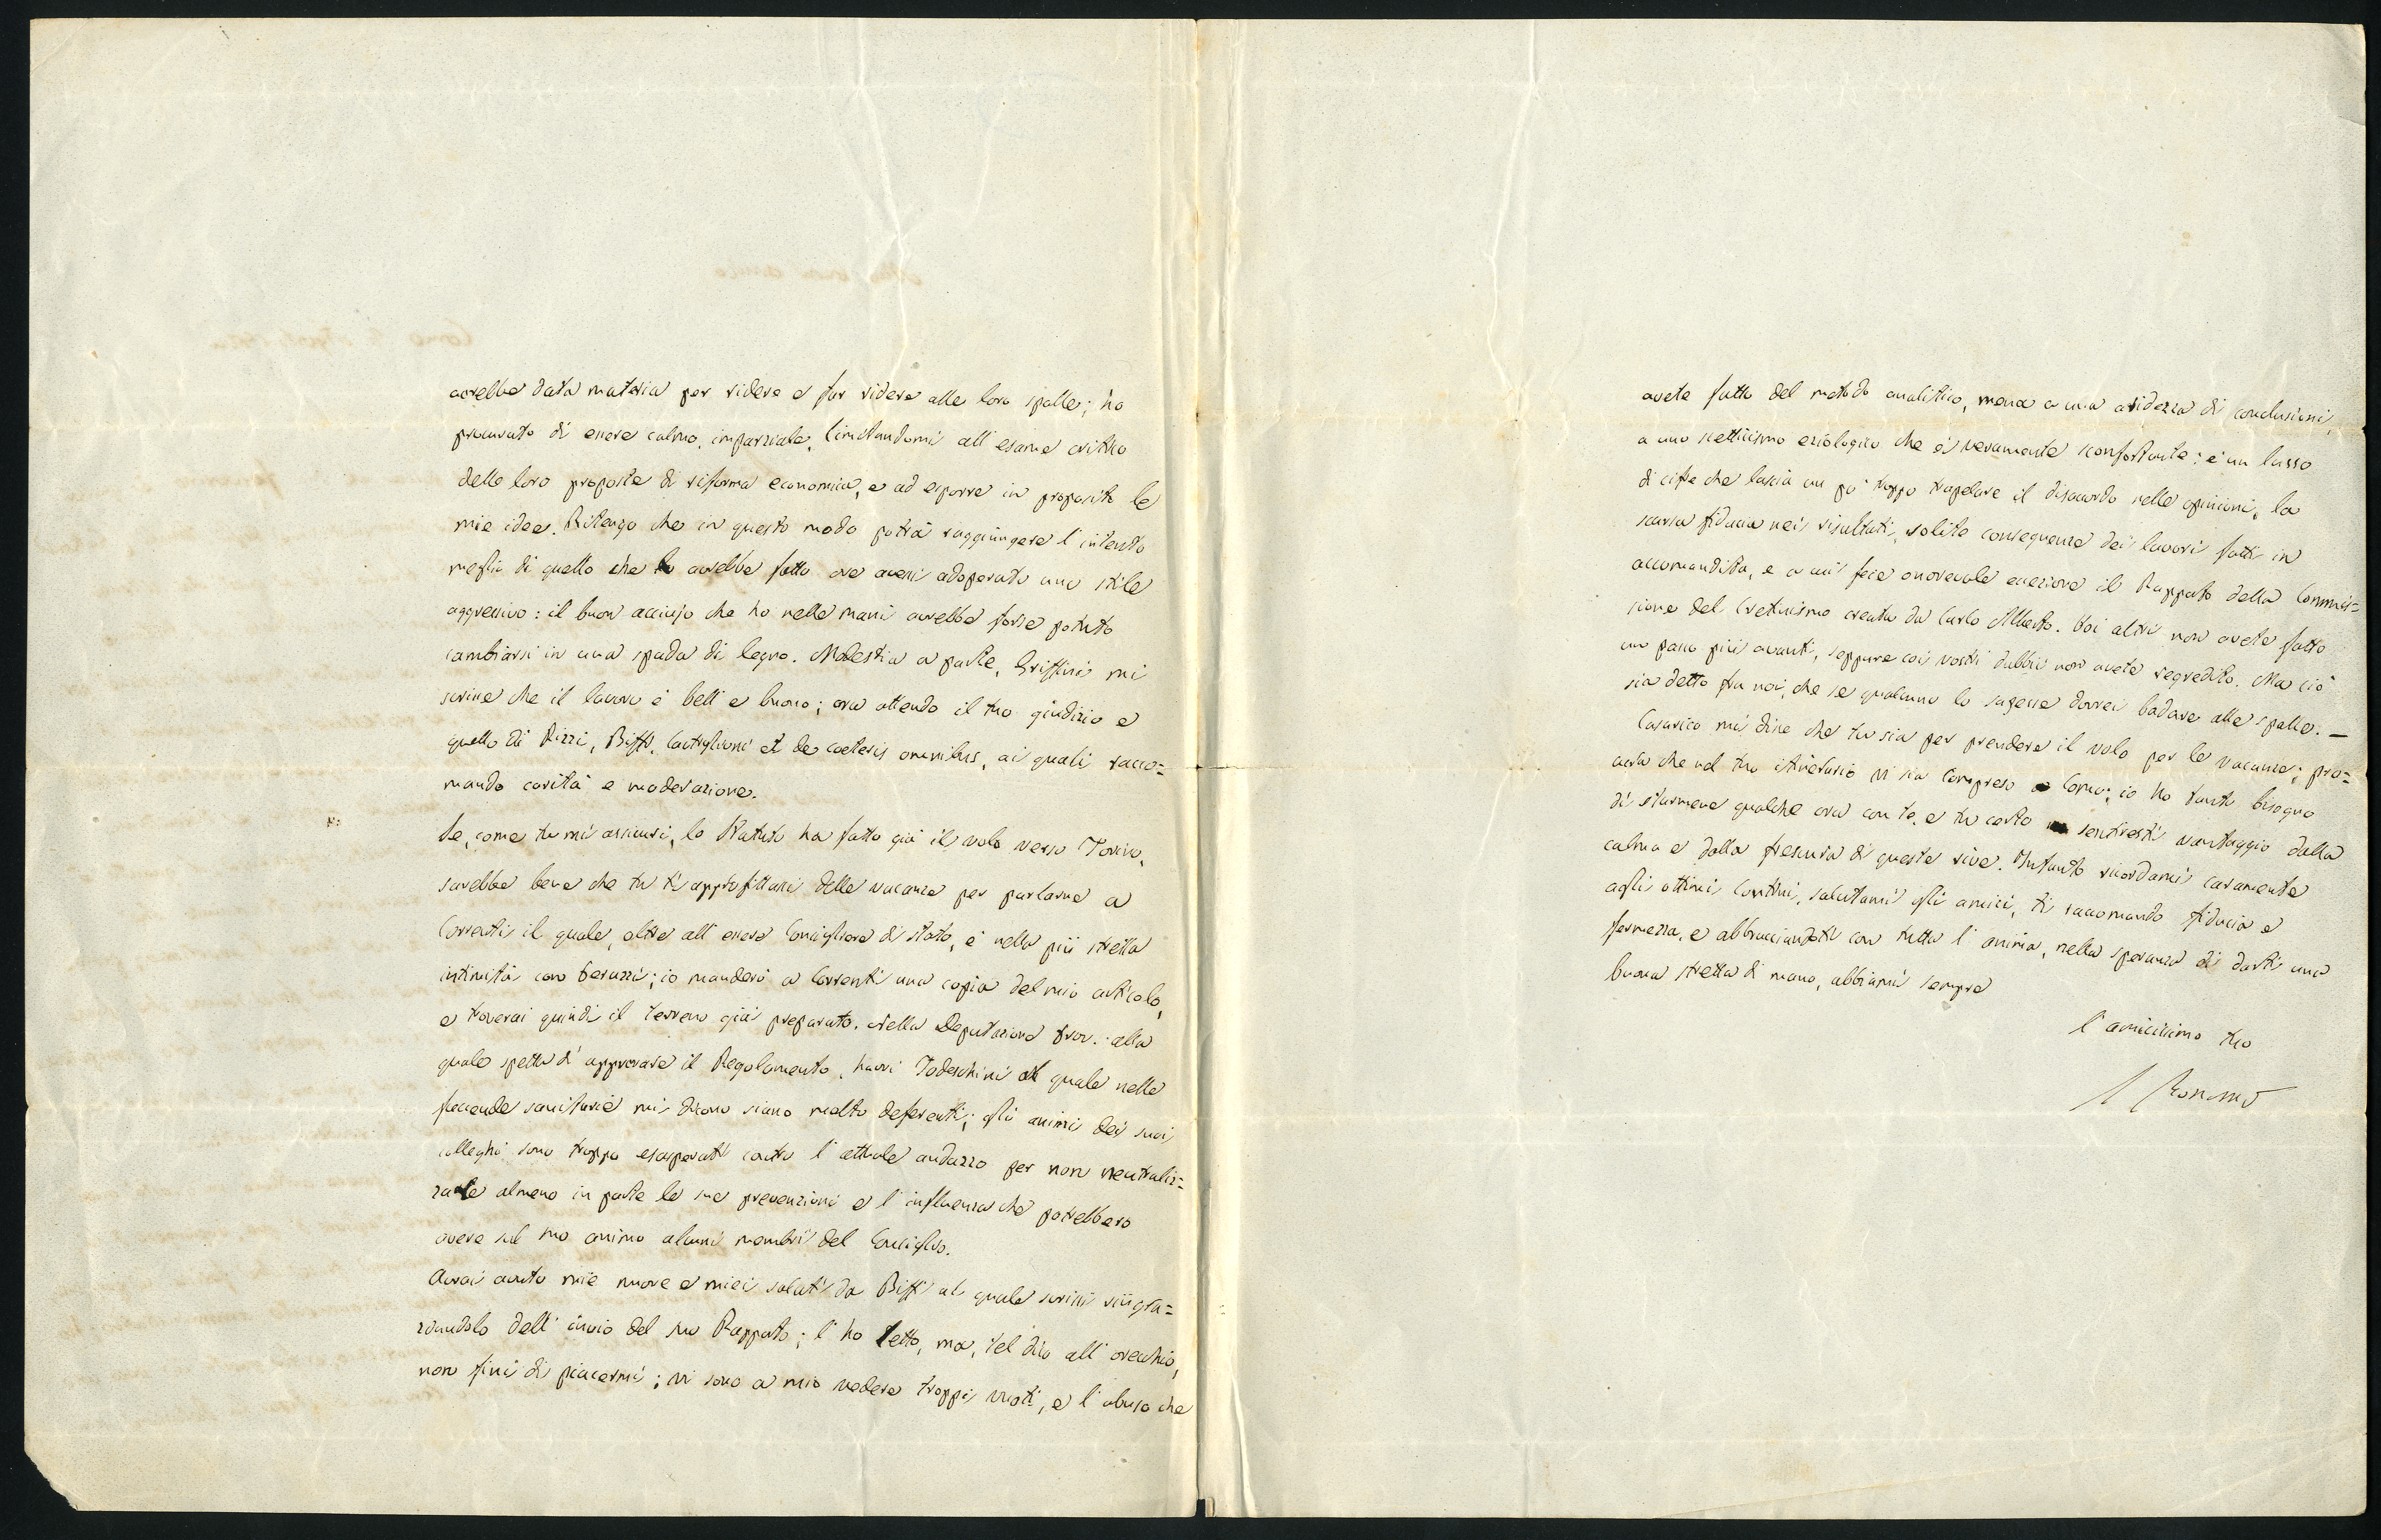 avrebbe data materia per ridere e far ridere alle loro spalle; ho
procurato di essere calmo, imparziale, limitandomi all' esame critico
delle loro proposte di riforma economica, e ad esporre in proposito le
mie idee. Ritengo che in questo modo potrà raggiungere l' intento
meglio di quello che lo avrebbe fatto ove avessi adoperato uno stile
aggressivo: il buon acciajo che ho nelle mani avrebbe forse potuto
cambiarsi in una spada di legno. Modestia a parte, Griffini mi
scrisse che il lavoro è bell e buono; ora attendo il tuo giudizio e
quello di Rizzi, Biffi, Castiglioni et de coeteris omnibus, ai quali racco=
mando carità e moderazione.
Se, come tu mi assicuri, lo Statuto ha fatto già il volo verso Torino,
sarebbe bene che tu ti approfittassi delle vacanze per parlarne a
Correnti il quale, oltre all' essere Consigliere di Stato, è nella più stretta
intimità con Peruzzi; io manderò a Correnti una copia del mio articolo,
e troverai quindi il terreno già preparato. Nella Deputazione prov. alla
quale spetta di approvare il Regolamento, havvi Tedeschini al quale nelle
faccende sanitarie mi dicono siano molto deferenti; gli animi dei suoi
colleghi sono troppo esasperati contro l' attuale andazzo per non neutraliz=
zare almeno in parte le sue prevenzioni e l' influenza che potrebbero
avere sul suo animo alcuni membri del Consiglio.
Avrai avuto mie nuove e miei saluti da Biffi al quale scrissi ringra=
ziandolo dell' invio del suo Rapporto; l' ho letto, ma, tel dico all' orecchio,
non finì di piacermi; vi sono a mio vedere troppi vuoti, e l' abuso che
avete fatto del metodo analitico, mena a una aridezza di conclusioni,
a uno scetticismo eziologico che è veramente sconfortante: è un lusso
di cifre che lascia un po' troppo trapelare il disaccordo nelle opinioni, la
scarsa fiducia nei risultati, solite conseguenze dei lavori fatti in
accomandita, e a cui fece onorevole eccezione il Rapporto della Commis=
sione del Cretinismo creata da Carlo Alberto. Voi altri non avete fatto
un passo più avanti, seppure coi vostri dubbii non avete regredito. Ma ciò
sia detto fra noi, che se qualcuno lo sapesse dovrei badare alle spalle. —
Casorico mi disse che tu sia per prendere il volo per le vacanze; pro=
cura che nel tuo itinerario vi sia compreso Como; io ho tanto bisogno
di starmene qualche ora con te, e tu certo sentiresti vantaggio dalla
calma e dalla frescura di queste rive. Intanto ricordami caramente
agli ottimi Contini, salutami gli amici, ti raccomando fiducia e
fermezza, e abbracciandoti con tutta l' anima, nella speranza di darti una
buona stretta di mano, abbiami sempre
l' amicissimo tuo